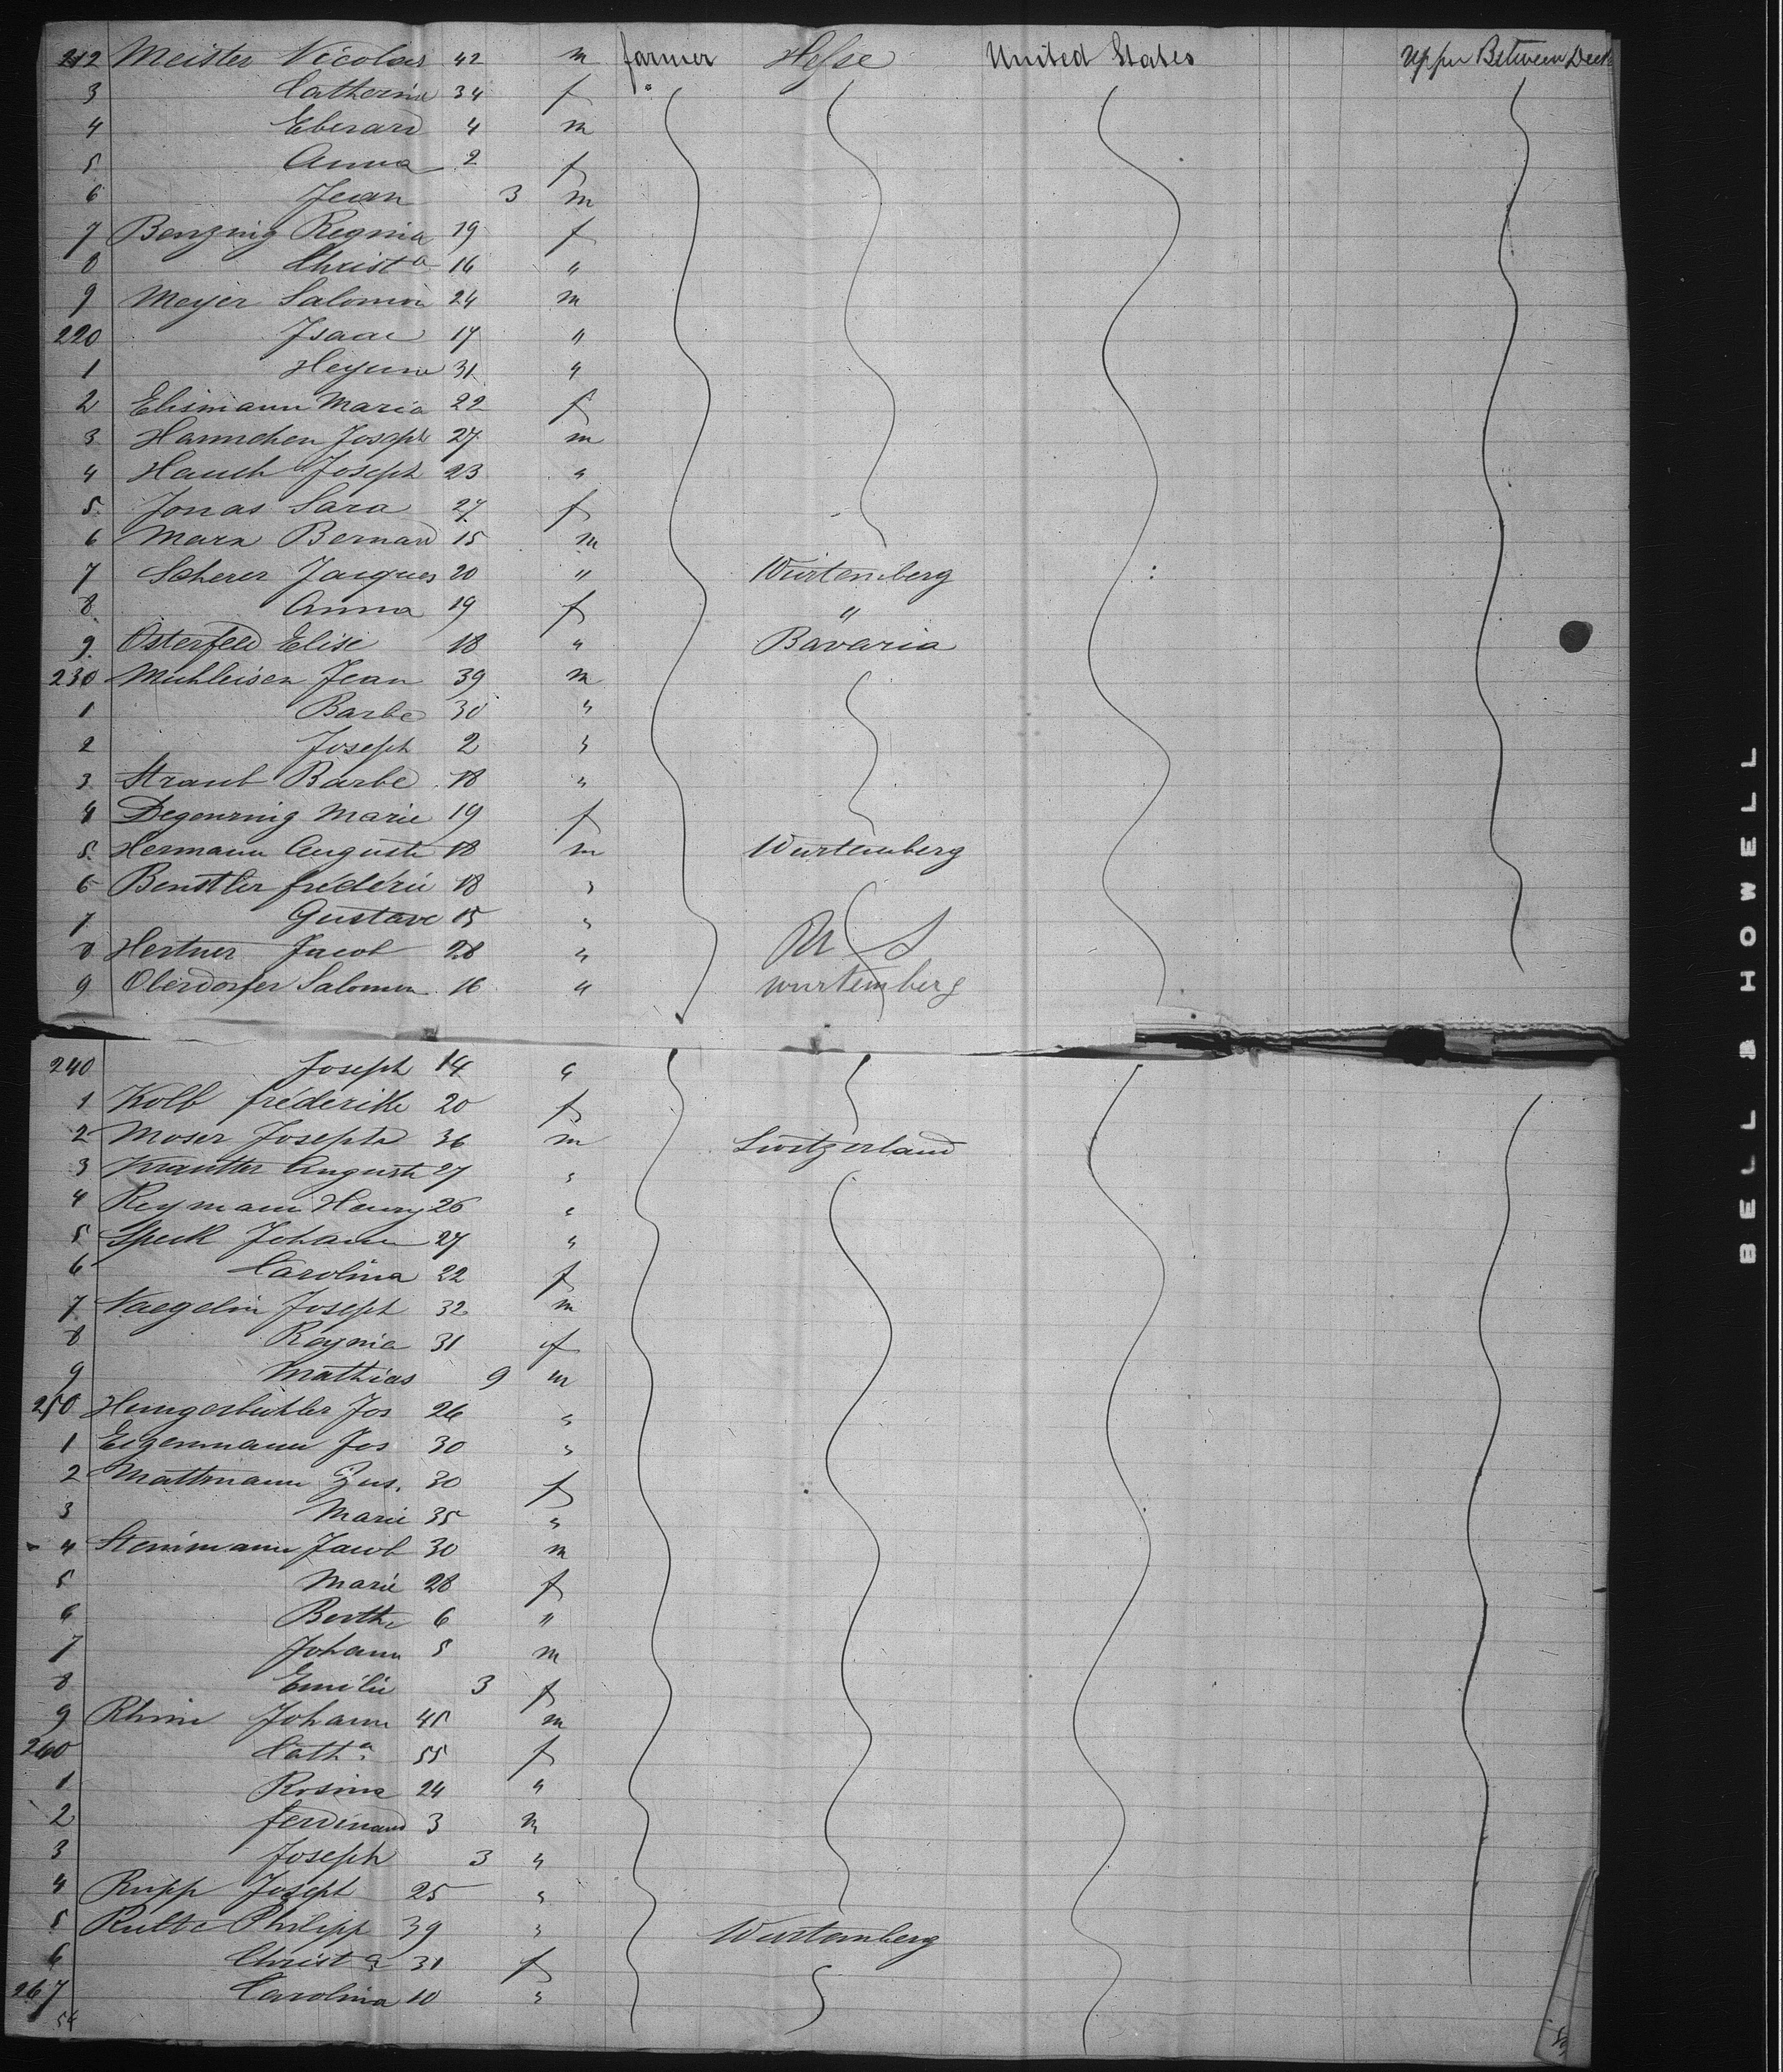 212 Meister Nicolas 42 m farmer Hesse United States Upper Between Deck
3 Catherine 34 f
4 Eberard 4 m
5 Anna 2 f
6 Jean 3 m
7 Benzing Regina 19 f
8 Christa 16 "
9 Meyer Salomon 24 m
220 Isaac 17 "
1 Heyum 31 "
2 Elismann Maria 22 f
3 Hannchen Joseph 27 m
4 Hauch Joseph 23 "
5 Jonas Sara 27 f
6 Marx Bernard 15 m
7 Scherer Jacques 20 " Würtemberg
8 Anna 19 f "
9 Osterfeld Elise 18 " Bavaria
230 Muhleisen Jean 39 m
1 Barbe 30 "
2 Joseph 2 "
3 Straub Barbe 18 "
4 Degenring Marie 19 f
5 Hermann Auguste 18 m Wurtemberg
6 Benstler fréderic 18 "
7 Gustave 15 "
8 Hertner Jacob 28 " U S
9 Oberdorfer Salomon 16 " wurtemberg
240 Joseph 14 "
1 Kolb fréderike 20 f
2 Moser Joseph 36 m Switzerland
3 Krautter Auguste 27 "
4 Reymann Henry 26 "
5 Speck Johann 27 "
6 Carolina 22 f
7 Naegelin Joseph 32 m
8 Regina 31 f
9 Mathias 9 m
250 Hungerbühler Jos 26 "
1 Eigenmann Jos 30 "
2 Mattmann Jus. 30 f
3 Marie 35 "
4 Steinmann Jacob 30 m
5 Marie 28 f
6 Berthe 6 "
7 Johann 5 m
8 Emilie 3 f
9 Rhim Johann 45 m
260 Catha 55 f
1 Rosina 24 "
2 ferdinand 3 m
3 Joseph 3 "
4 Rupp Joseph 25 "
5 Philipp 39 " Wurtemberg
6 Christa 31 f
267 Carolina 10 "
54
BELL & HOWELL